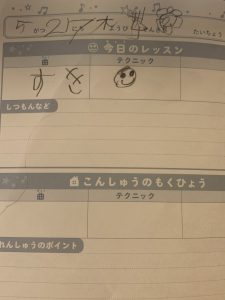 5がつ21にち 木ようび
たいちょう
今日のレッスン
曲 テクニック
すき
しつもんなど
こんしゅうのもくひょう
曲 テクニック
れんしゅうのポイント